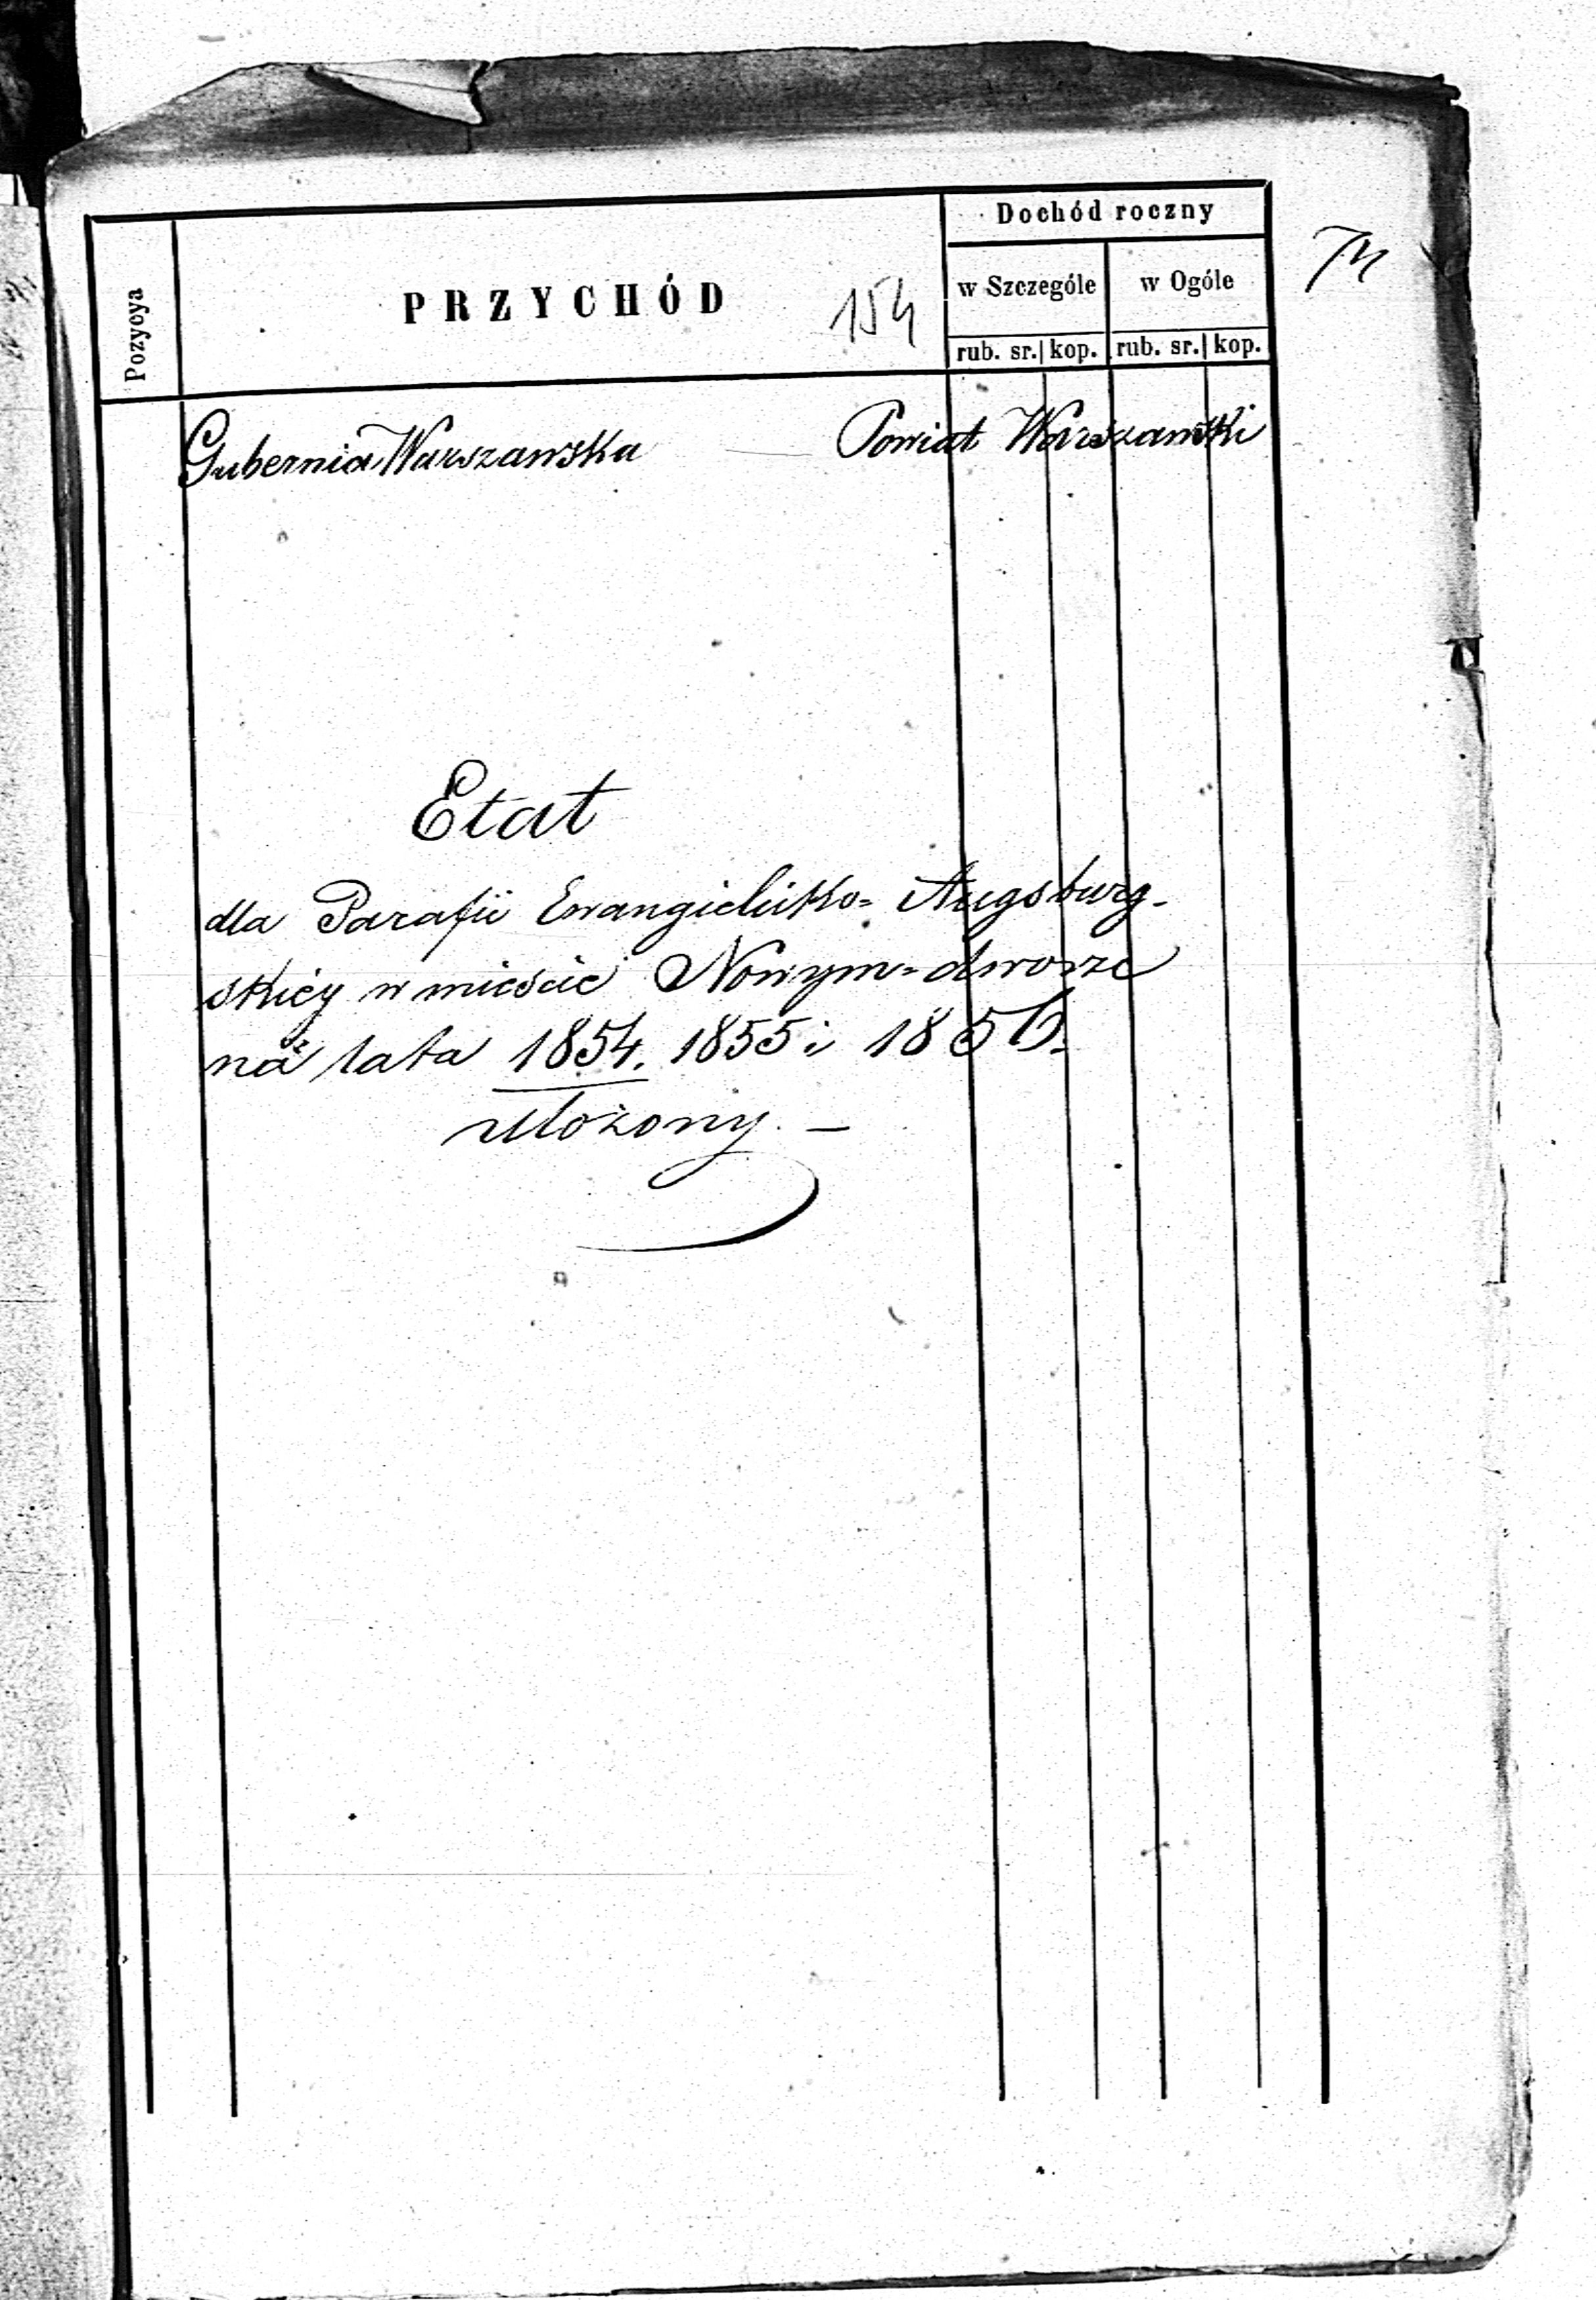 Dochód roczny
Pozycya
PRZYCHÓD
154
w Szczególe
w Ogóle
rub. sr. kop. rub. sr. kop.
Gubernia Warszawska — Powiat Warszawski
Etat
dla Parafii Ewangielicko= Augsburg-
skiey w mieście Nowym=dworze
na lata 1854. 1855 i 1856.
ułożony. —